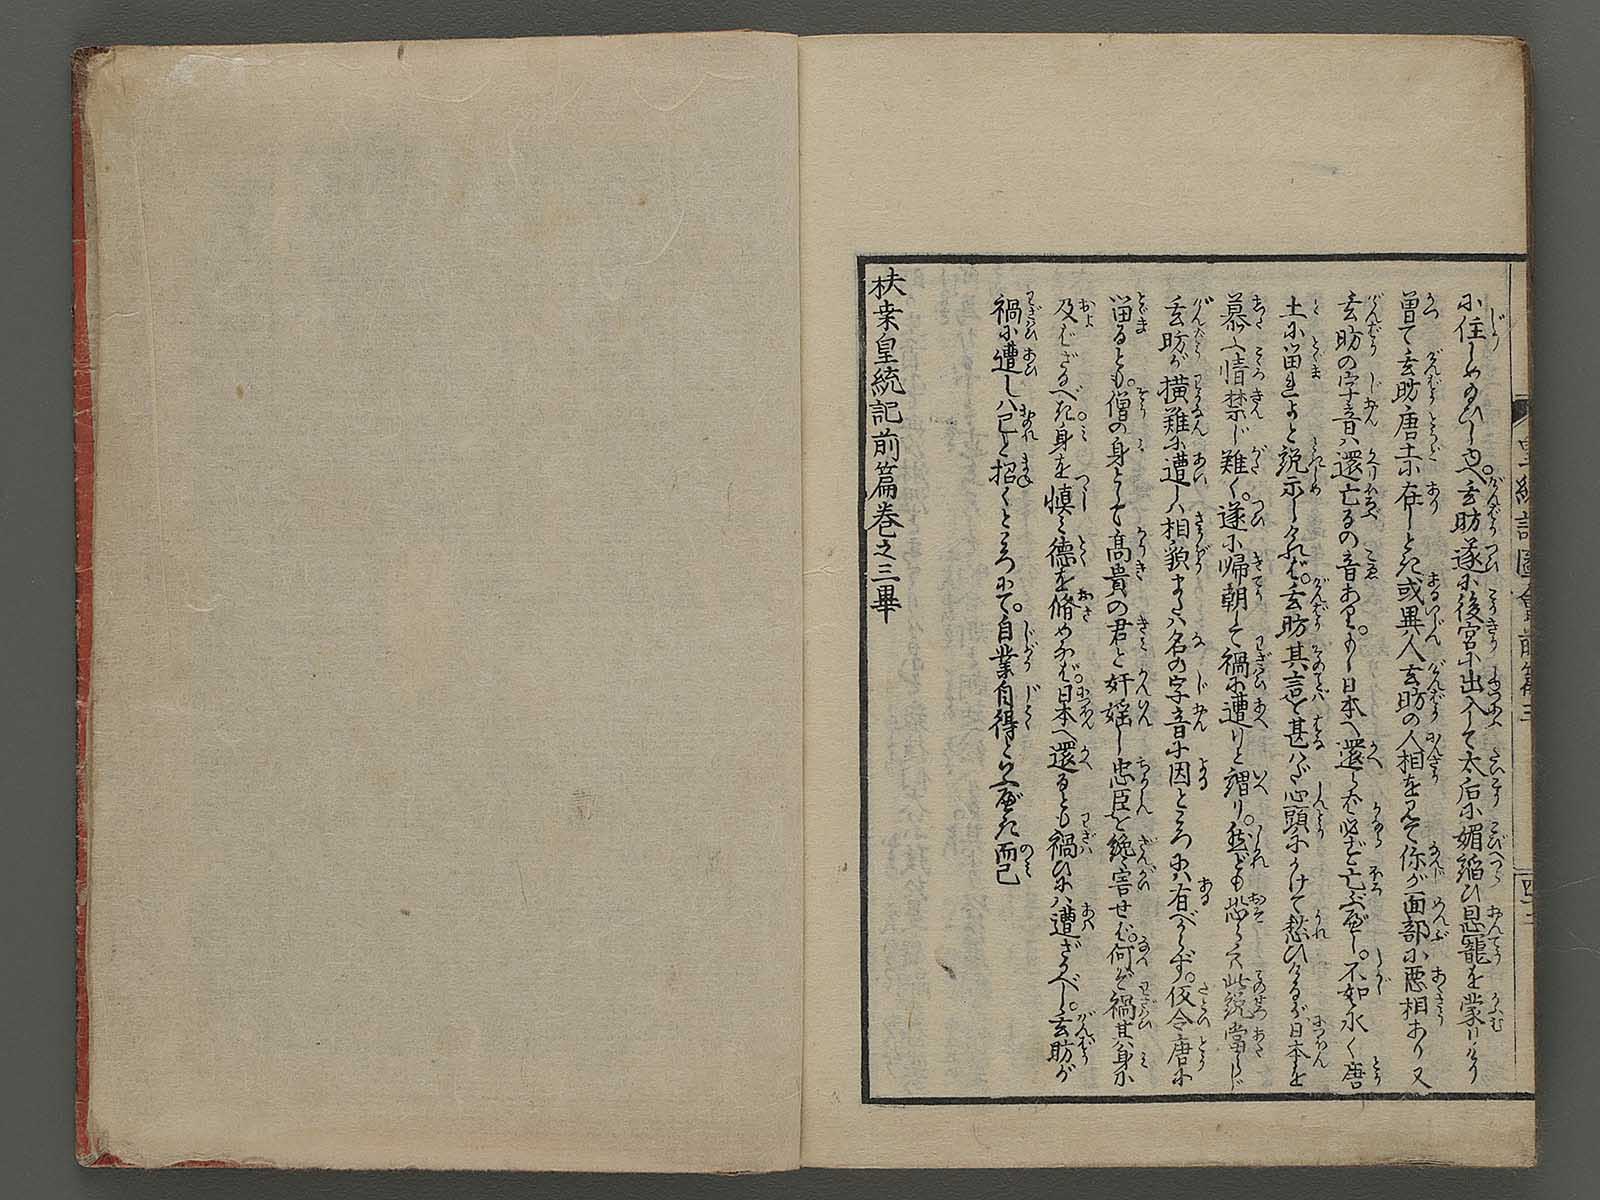 に住しめ給ひしゆへ。玄昉遂に後宮に出入して太后に媚諂ひ恩寵を蒙りけり
曽て玄昉唐土に在しとき或異人玄昉の人相を見て你が面部に悪相あり又
玄昉の字音ハ還亡るの音あり。もし日本へ還らバ必ず亡ぶべし。不如永く唐
土に留れよと説示しけれバ。玄昉其言を甚ハだ心頭にかけて愁ひけるが日本を
慕ふ情禁じ難く。遂に帰朝して禍に遭りと謂り。然ども恐らくハ此説當らじ
玄昉が横難に遭しハ相貌または名の字音に因ところにハ有べからず。仮令唐に
留るとも。僧の身として高貴の君と奸婬し忠臣を讒害せバ。何ぞ禍其身に
及バざるべき。身を慎ミ徳を脩めなバ。日本へ還るとも禍ひにハ遭ざるべし。玄昉が
禍に遭しハ己と招くところにて。自業自得といふべき而已
扶桒皇統記前篇巻之三畢
皇統記圖會前篇三